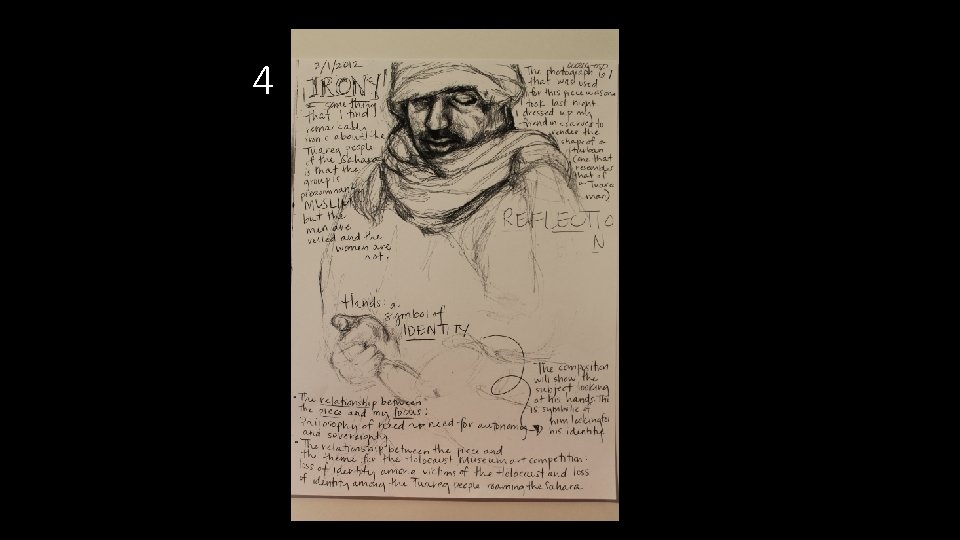 4
3/1/2012
IRONY
- something
that I find
remarkably
ironic about the
Tuareg people
of the Sahara
is that the
group is
predominantly
MUSLIM
but the
men are
veiled and the
women are
not.
The photograph
that was used
for this piece was one
I took last night
I dressed up my
friend in scarves to
render the
shape of a
turban
(one that
resembles
that of
a Tuareg
man)
REFLECTIO
N
Hands: a
symbol of
IDENTITY
The composition
will show the
subject looking
at his hands. This
is symbolic of
him looking for
his identity
• The relationship between
the piece and my focus:
Philosophy of need → need for autonomy
and sovereignty
• The relationship between the piece and
the theme for the Holocaust Museum art competition:
loss of identity among victims of the Holocaust and loss
of identity among the Tuareg people roaming the Sahara.